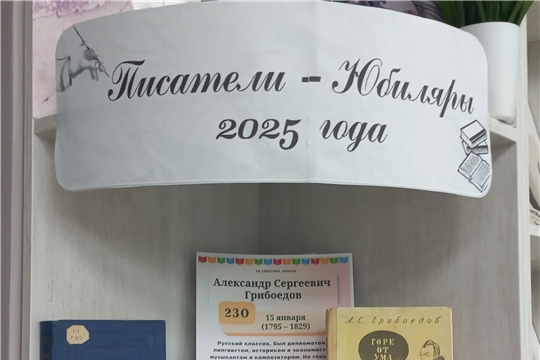 Писатели - Юбиляры
2025 года
Александр Сергеевич
Грибоедов
230
15 января
(1795 – 1829)
Русский классик. Был дипломатом,
лингвистом, историком и экономистом,
музыкантом и композитором. Но глав
А.С. Грибоедов
ГОРЕ
ОТ
УМА